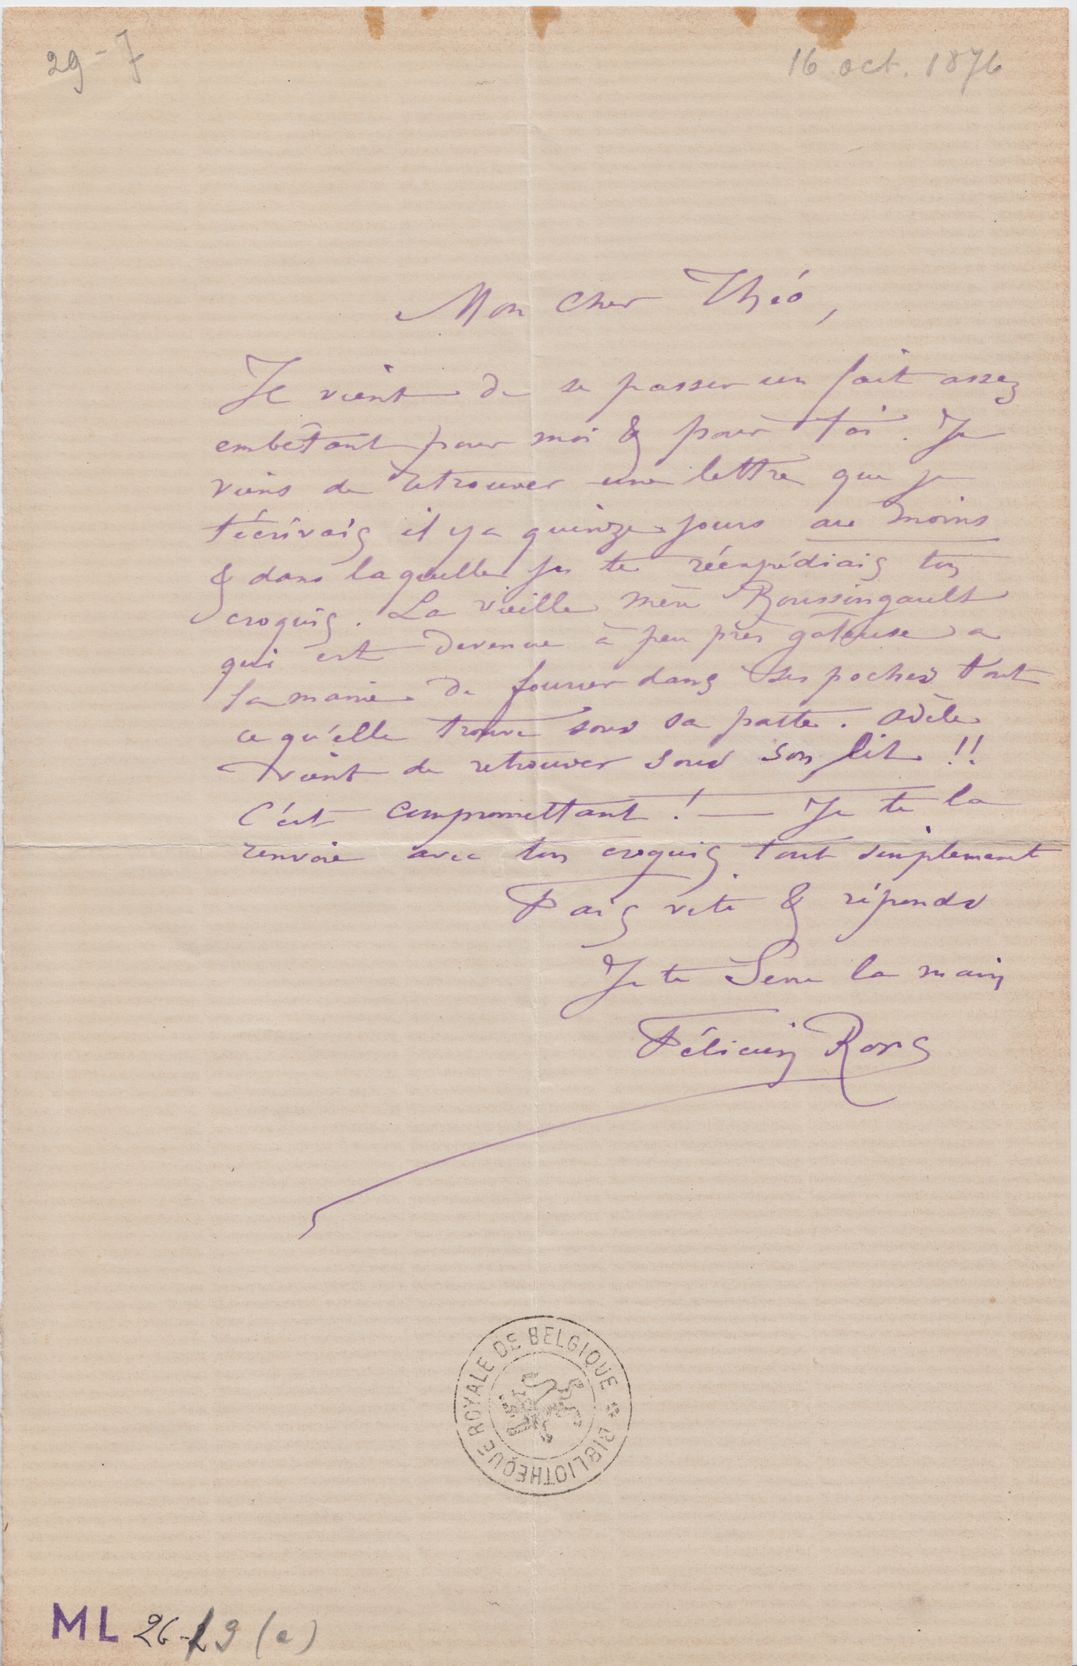 29-7
16 oct. 1876
Mon cher Théo,
Il vient de se passer un fait assez
embêtant pour moi & pour toi. Je
viens de retrouver une lettre que je
t'écrivais il y a quinze jours au moins
& dans laquelle je te réexpédiais ton
croquis. La vieille mère Boussingault
qui est devenue à peu près gâteuse a
la manie de fourrer dans ses poches tout
ce qu'elle trouve sous sa patte. Adèle
vient de retrouver sous son lit !!
C'est compromettant ! — Je te la
renvoie avec ton croquis tout simplement
Fais vite & réponds
Je te serre la main
Félicien Rops
BIBLIOTHÈQUE ROYALE DE BELGIQUE
ML 26-19 (a)